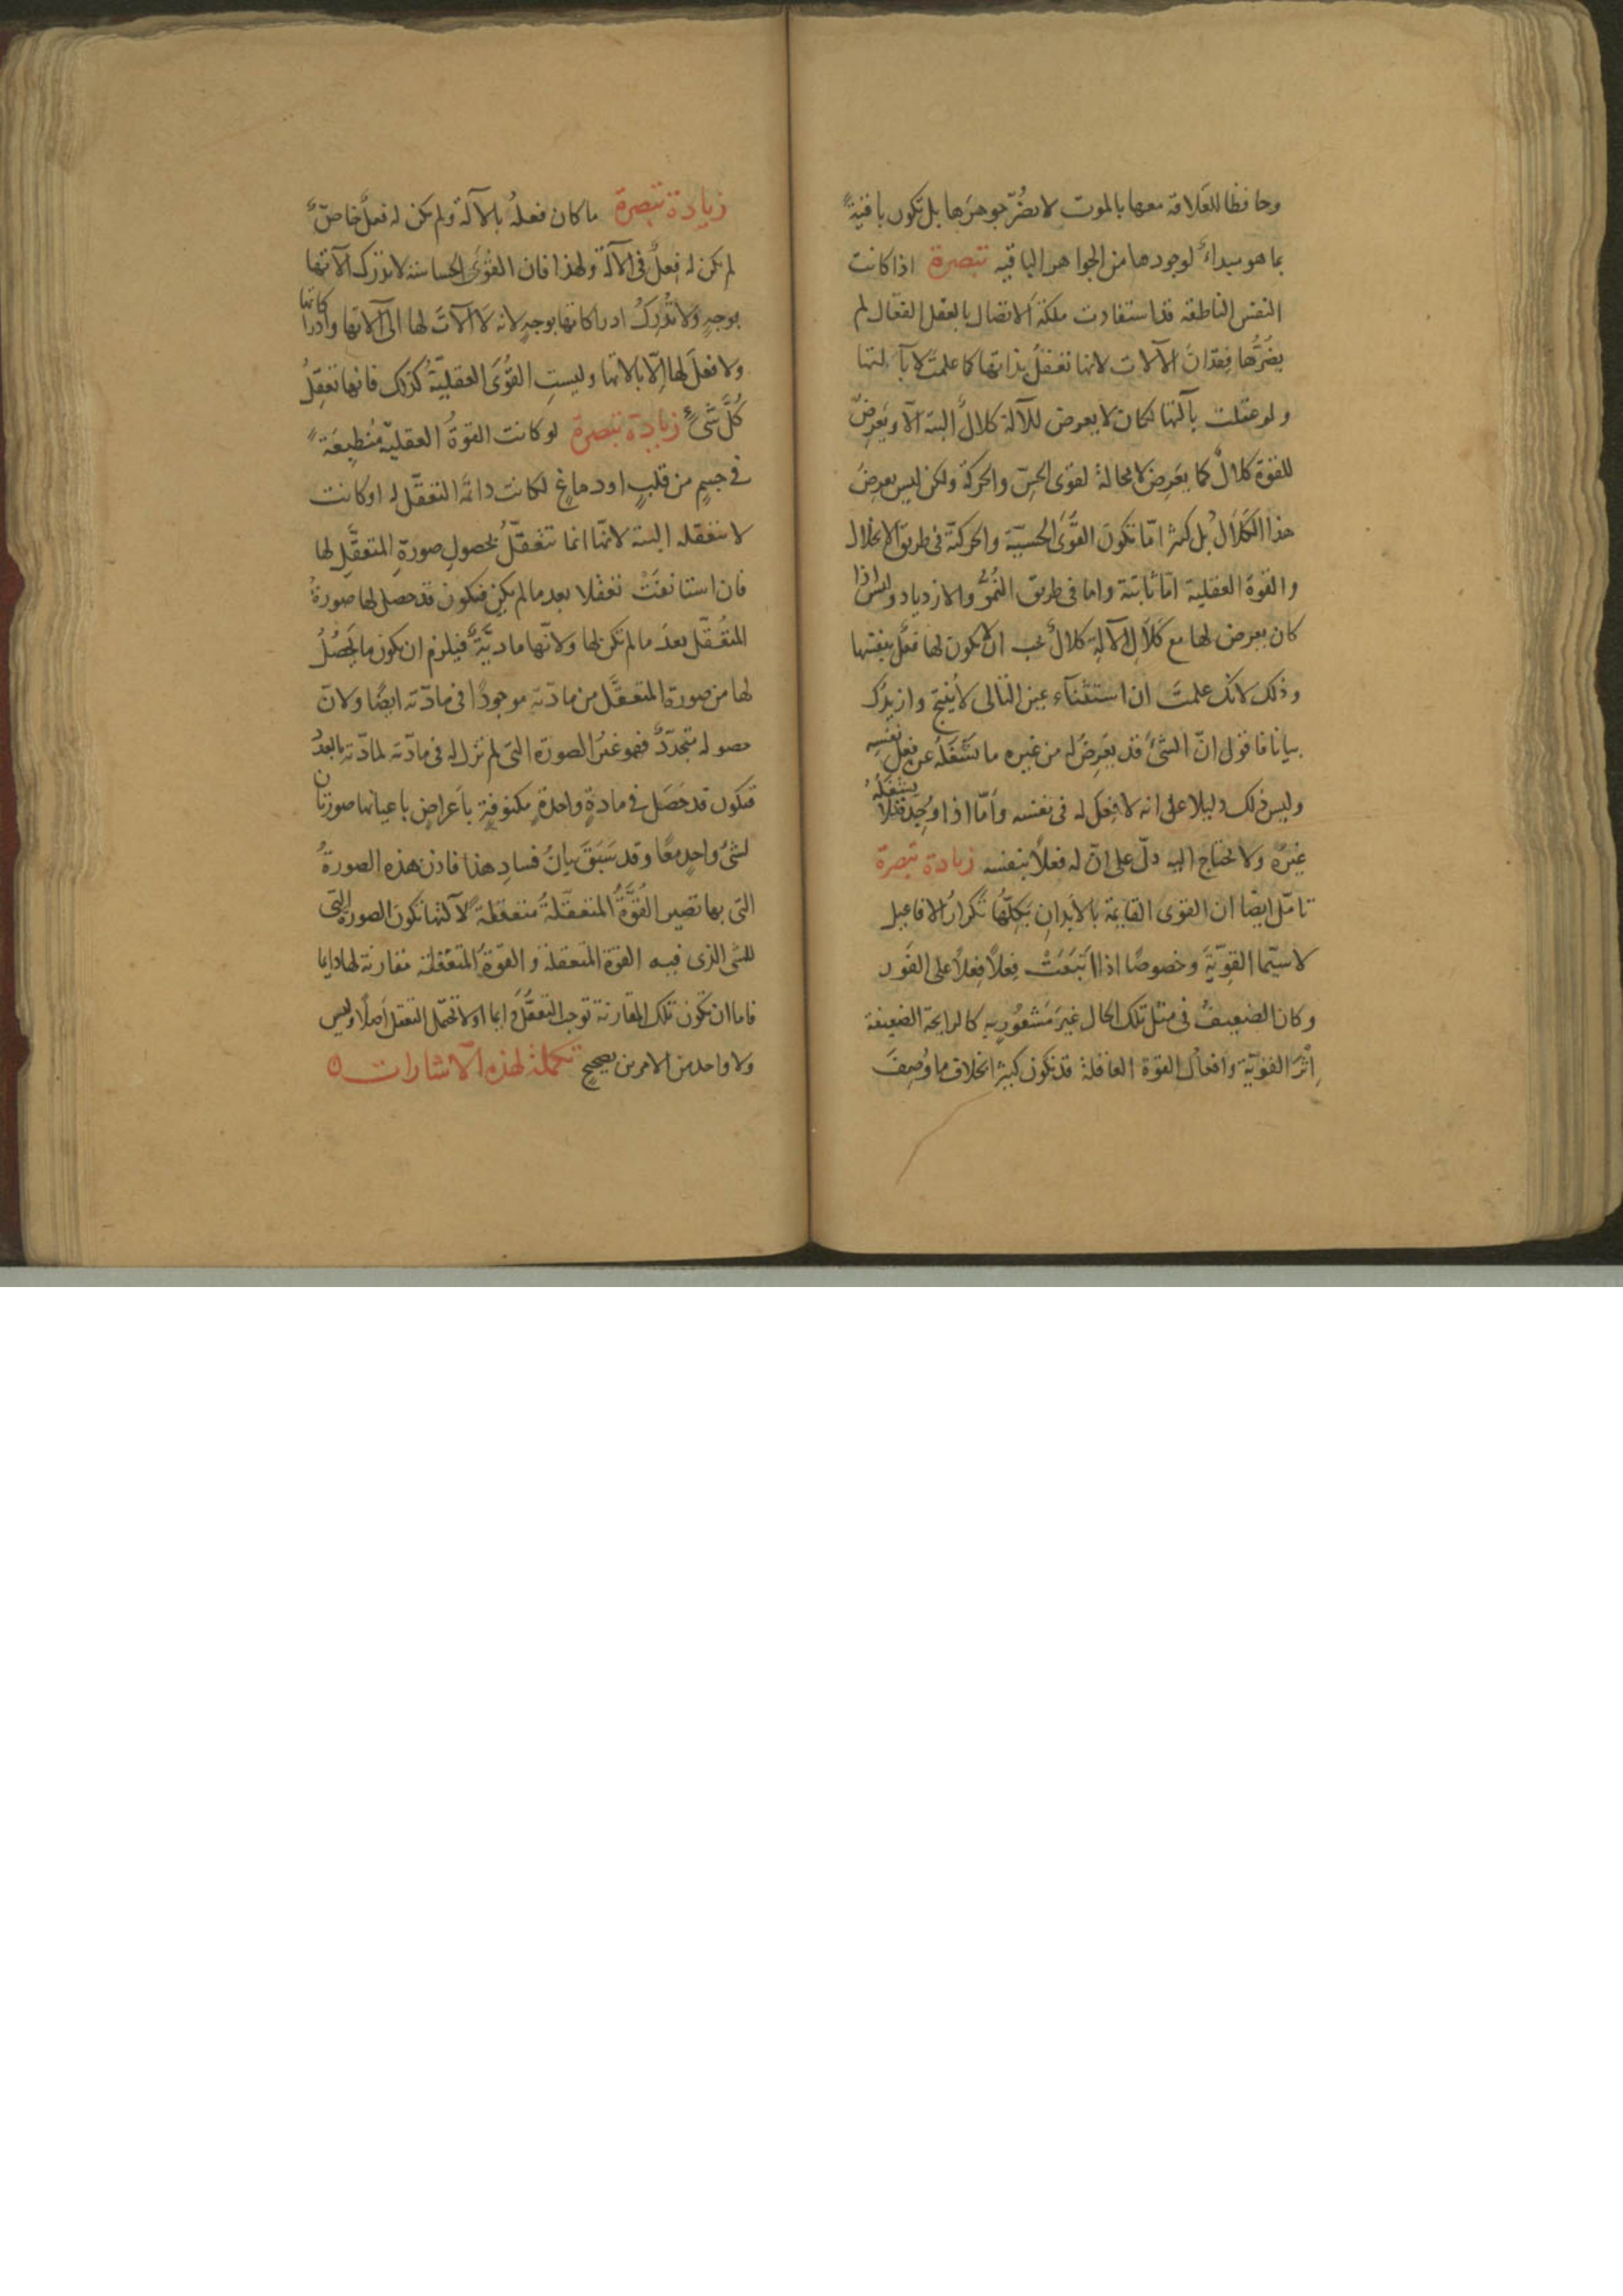 وحافظا للعلاقة معها بالموت لا يضُرّ جوهرَها بل تكون باقيةً
بما هو مبداءٌ لوجودها من الجواهر الباقيه تبصرة اذا كانت
النفس الناطقه قد استفادت ملكة الاتصال بالعقل الفعّال لم
يضُرُّها فِقدانُ الآلات لانها تعقلُ بذاتها كما علمتَ لا بآلتها
ولو عقلت بآلتها لكان لا يعرض للآلة كلالٌ البتة الّا ويَعرِضُ
للقوة كلالٌ كما يعَرِض لا محالة لقوى الحِسّ والحركة ولكن ليس يعرِضُ
هذا الكَلالُ بل كثيرا امّا تكون القُوَى الحسيّة والحركيّة فى طريق الانحلال
والقوة العقلية امّا ثابتة واما فى طريق النُمُوّ والازدياد وليس اذا
كان يعرض لها مع كَلالِ الآلةِ كلالٌ يجب ان لا يكون لها فعلٌ بنفسها
وذلك لانك علمتَ ان استثناء عين التالى لا يُنتِج وازيدُك
بيانا فاقول انّ الشىءَ قد يعَرِضُ له من غيره ما يَشغَلُه عن فِعل نفسِه
وليس ذلك دليلا على انه لا فِعلَ له فى نفسه وأمّا اذا وُجِدَ قد لا يشغَلُهُ
غيرُه ولا يحتاج اليه دلّ على انّ له فعلاً بنفسه زيادة تبصرة
تامّل ايضًا ان القوى القايمة بالأبدانِ يُكِلُّهَا تَكرارُ الافاعيل
لا سيّما القوِيّةَ وخصوصًا اذا اتبَعَتْ فِعلاً فِعلاً على الفَور
وكان الضعيفُ فى مثل تلك الحال غيرَ مَشعُورٍ به كالرايحة الضعيفة
اِثْرَ القوِيّة وافعالُ القوة العاقلة قد تكون كثيرًا بخلاف ما وُصِفَ
زيادة تبصرة ما كان فعلُه بالآلة ولم يكن له فعلٌ خاصٌّ
لم يكن له فِعلٌ فى الآلة ولهذا فان القُوَى الحساسة لا تدرك آلاتها
بوجهٍ ولا تُدرِكُ ادراكاتها بوجهٍ لانه لا آلاتَ لها الى آلاتها وادراكاتها
ولا فعلَ لها الّا بالاتها وليستِ القُوَى العقليّة كذلك فانها تعقِلُ
كُلَّ شىءٍ زيادة تبصرة لو كانت القوةُ العقليّة مُنطبِعَةً
فى جسمٍ من قلبٍ او دماغٍ لكانت دائمَة التعقّل له او كانت
لا تتعقله البتة لانّها انما تتعقّلُ بحصولِ صورةِ المتعقَّلِ لها
فان استانفَتْ تعقّلا بعد ما لم يكن فيكون قد حصل لها صورةُ
المتعقّل بعدَ ما لم تكن لها ولانّها ماديّةٌ فيلزم ان يكون ما يَحصُلُ
لها من صورة المتعقَّل من مادّتهِ موجودًا فى مادّته ايضًا ولانّ
حصوله متجدّدٌ فهو غيرُ الصورة التى لم تزل له فى مادّته لمادّتهِ بالعددِ
فيكون قد حَصَل فى مادةٍ واحدةٍ مكنوفةٍ باَعراضٍ باعيانها صورتان
لشىءٍ واحدٍ معًا وقد سَبَقَ بيانُ فسادِ هذا فاذن هذه الصورةُ
التى بها تصير القُوَّةُ المتعقّلةُ متعقلةً لآلتها تكون الصورة التى
للشى الذى فيه القوة المتعقلة والقوةُ المتعقلة مقارنة لها دايما
فاما ان تكون تلك المقارنة توجب التعقُّلَ دايما او لا تحتمل التعقل أصلاً وليس
ولا واحد من الامرين بصحيحٍ تكملة لهذه الاشارات ه